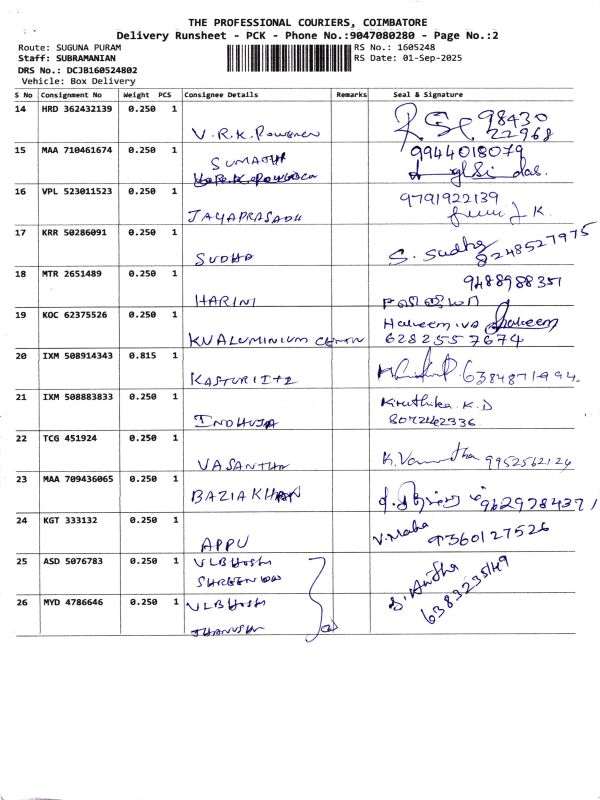 THE PROFESSIONAL COURIERS, COIMBATORE
Delivery Runsheet - PCK - Phone No.:9047080280 - Page No.:2
Route: SUGUNA PURAM RS No.: 1605248
Staff: SUBRAMANIAN RS Date: 01-Sep-2025
DRS No.: DCJB160524802
Vehicle: Box Delivery
S No Consignment No Weight PCS Consignee Details Remarks Seal & Signature
14 HRD 362432139 0.250 1 98430
V.R.K. 22968
15 MAA 710461674 0.250 1 9944018079
SUMATHI das.
16 VPL 523011523 0.250 1 9791922139
JAYAPRASADH J.K.
17 KRR 50286091 0.250 1
SUDHA S. Sudha 8248527975
18 MTR 2651489 0.250 1 9488988357
HARINI
19 KOC 62375526 0.250 1 Hakeem
KV ALUMINIUM 6282557674
20 IXM 508914343 0.815 1
KASTURI 6384871994.
21 IXM 508883833 0.250 1 Kiruthika. K. D
INDHUJA 8072462336
22 TCG 451924 0.250 1
VASANTHA K. 9952562124
23 MAA 709436065 0.250 1
BAZIA KHAN 9629784371
24 KGT 333132 0.250 1 V. Maha 9360127526
APPU
25 ASD 5076783 0.250 1 VLB Hostl
S. Anitha
6383235149
26 MYD 4786646 0.250 1 VLB Hostl